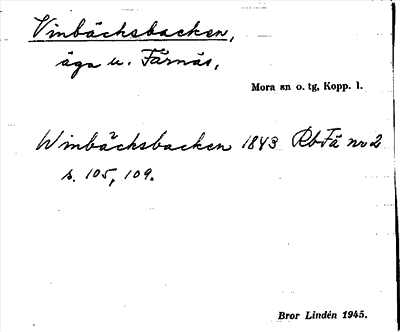 Vinbächsbacken,
äga u. Färnäs,
Mora sn o. tg, Kopp. l.
Winbächsbacken 1843 RbFä nr 2
s. 105, 109.
Bror Lindén 1945.